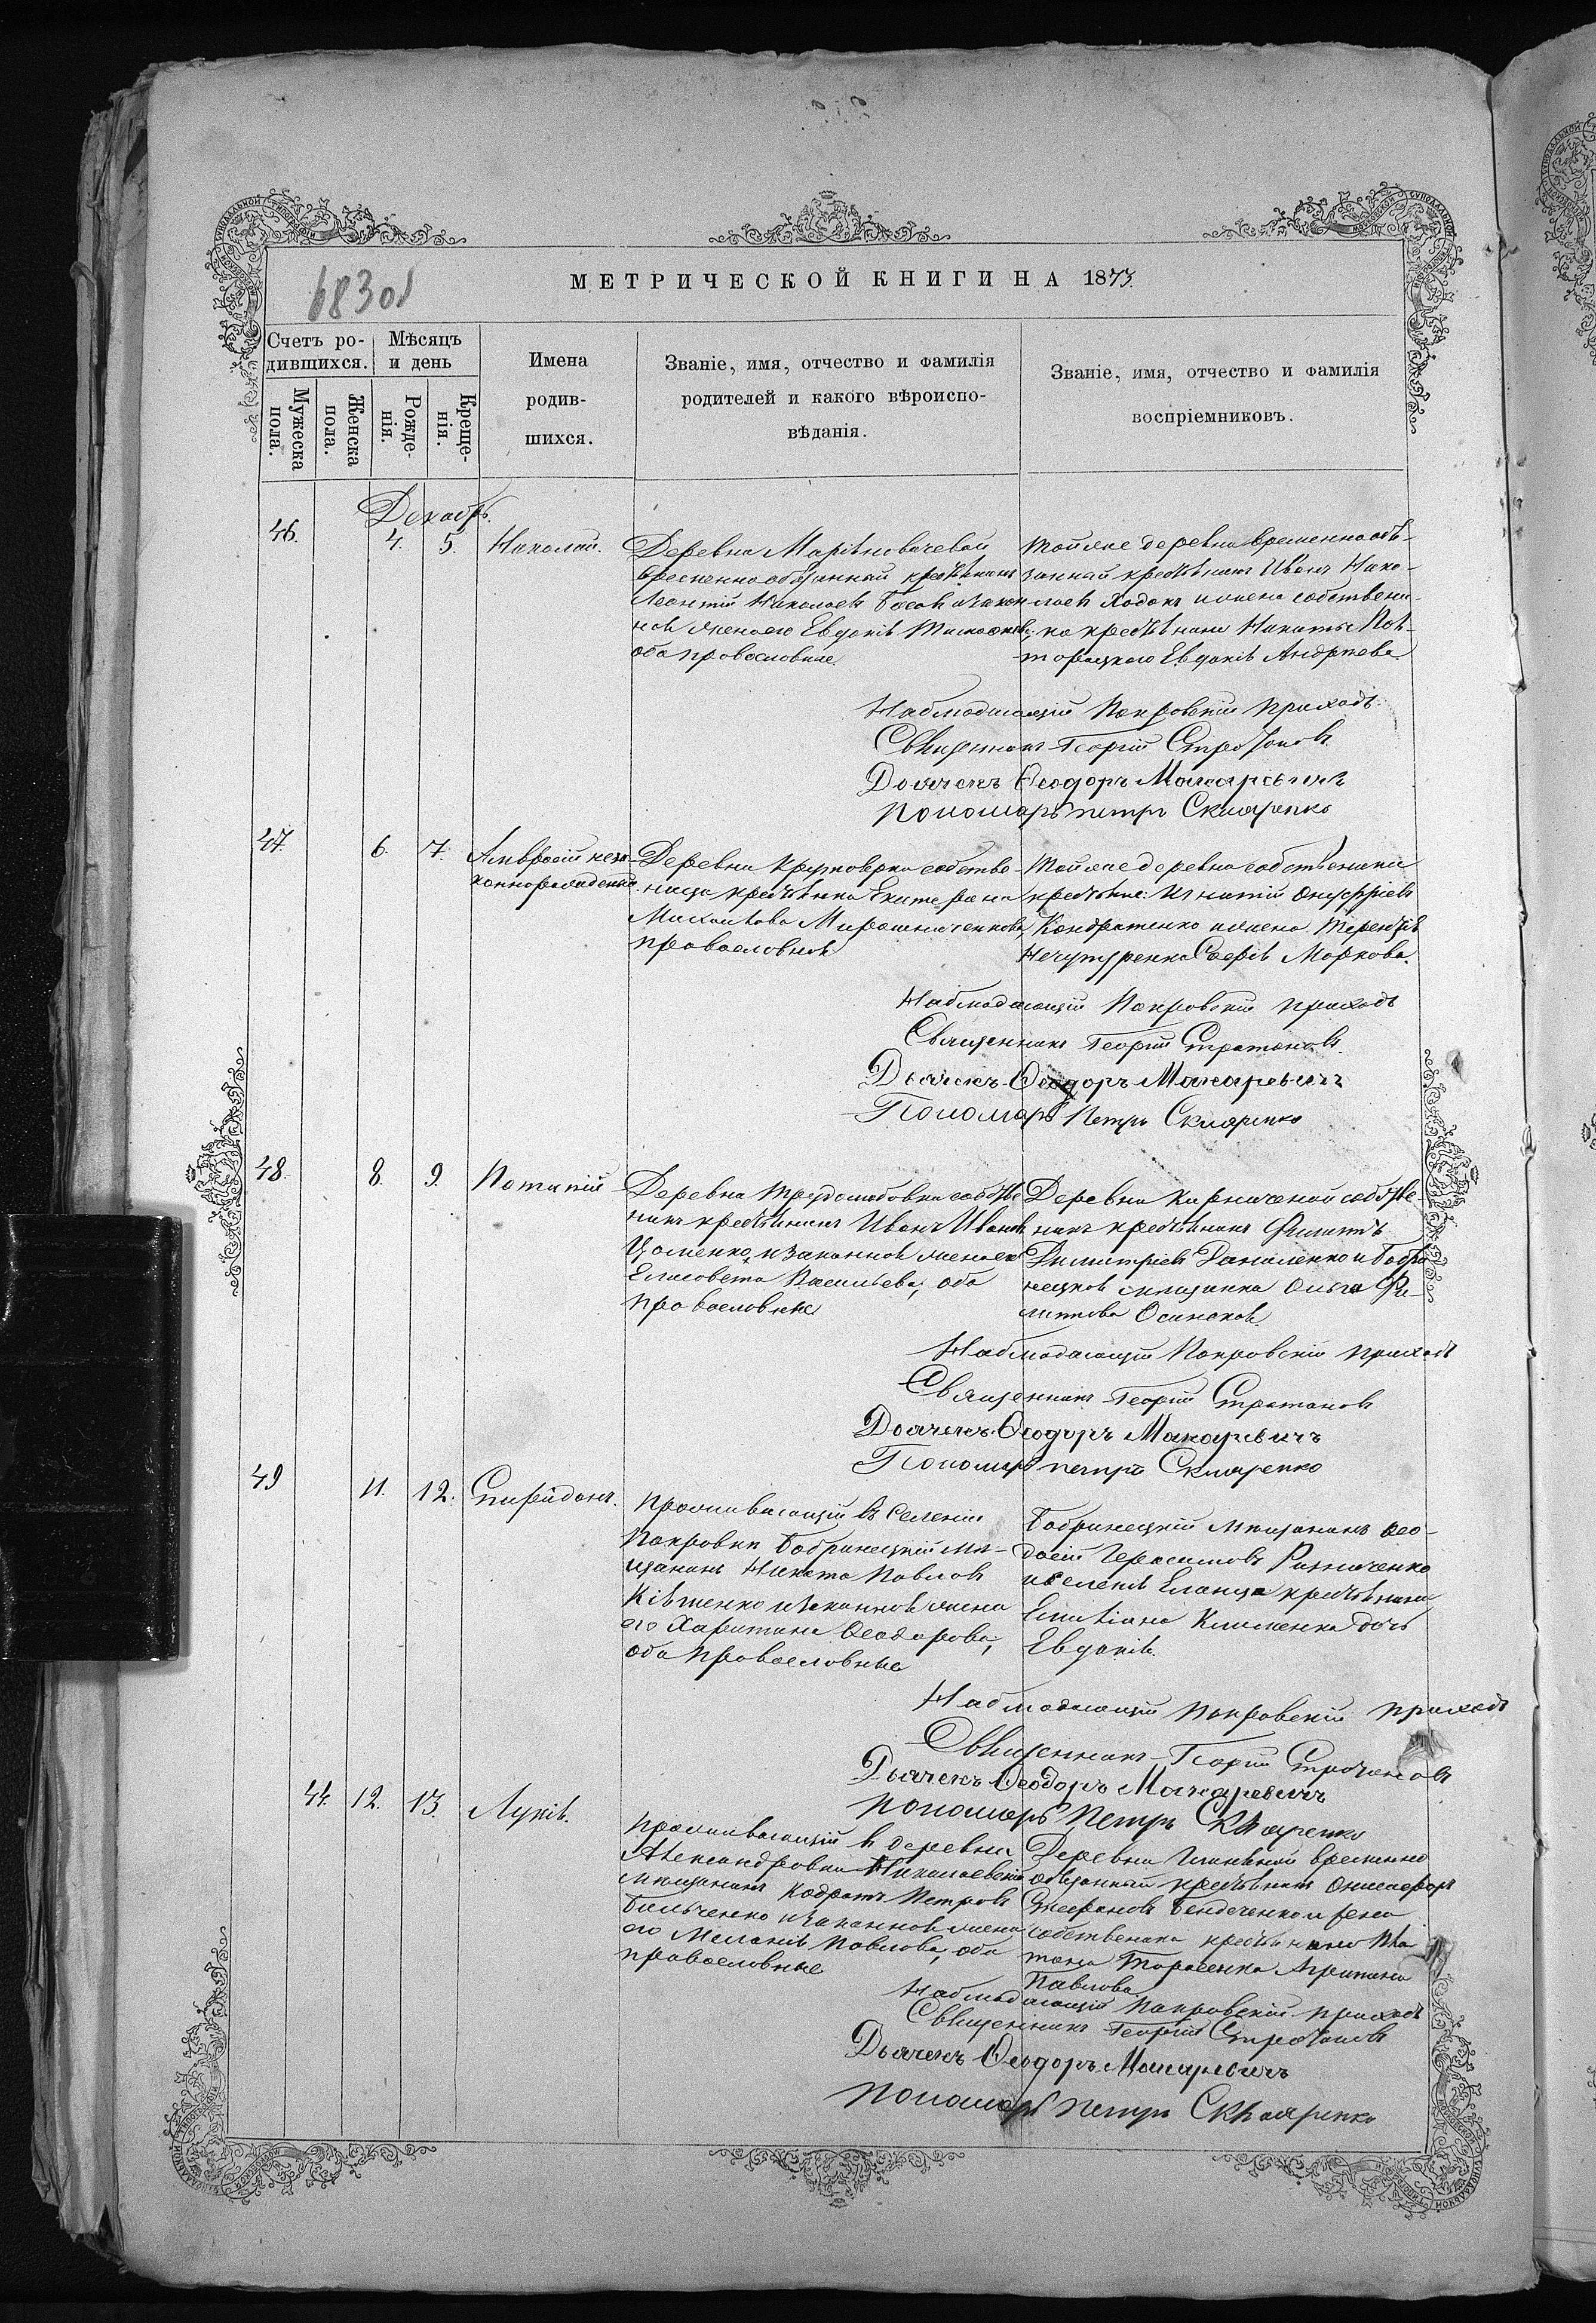 68301
МЕТРИЧЕСКОЙ КНИГИ НА 1873
Счетъ ро-
дившихся.
Мѣсяцъ
и день
Мужеска
пола.
Женска
пола.
Рожде-
нія.
Креще-
нія.
Имена
родив-
шихся.
Званіе, имя, отчество и фамилія
родителей и какого вѣроиспо-
вѣданія.
Званіе, имя, отчество и фамилія
воспріемниковъ.
Декабрь.
46.
4.
5.
Николай.
Деревни
временно обязанный крестьянинъ
Леонтій Николаевъ и закон
ная жена его Евдокія
оба православные
Той же деревни временно об-
занный крестьянинъ Иванъ Нико-
лаевъ Ходакъ и жена собствен-
ка крестьянина Никиты
Евдокія Андреева.
Наблюдающій Покровскій приходъ
Священникъ Георгій Стратоновъ.
Дьячекъ Ѳеодоръ Макаревичъ
Пономарь Петръ Скляренко
47.
6.
7.
Амвросій неза-
коннорожденный.
Деревни собстве-
ница крестьянка Екатерина
Михаилова Мирошниченкова,
православная
Той же деревни собственники
крестьяне: Игнатій Онуфріевъ
Кондратенко и жена Терентія
Софія Маркова.
Наблюдающій Покровскій приходъ
Священникъ Георгій Стратоновъ.
Дьячекъ Ѳеодоръ Макаревичъ
Пономарь Петръ Скляренко
48.
8.
9.
Потапій
Деревни Трудолюбовки собстве
никъ крестьянинъ Иванъ Ивановъ
и законная жена его
Елисовета Васильева, оба
православные
Деревни собстве-
никъ крестьянинъ Филиппъ
Димитріевъ Даниленко и Бобри
нецкая мѣщанка Ольга Фи-
липпова
Наблюдающій Покровскій приходъ
Священникъ Георгій Стратоновъ
Дьячекъ Ѳеодоръ Макаревичъ
Пономарь Петръ Скляренко
49
11.
12.
Спиридонъ.
Проживающій въ селеніи
Покровки Бобринецкій мѣ-
щанинъ Никита Павловъ
и законная жена
его Харитина Ѳеодорова,
оба православные
Бобринецкій мѣщанинъ Ѳео-
досій Герасимовъ
и селенія Еланца крестьянина
Емиліана Клименка дочь
Евдокія.
Наблюдающій Покровскій приходъ
Священникъ Георгій Стратоновъ
Дьячекъ Ѳеодоръ Макаревичъ
Пономарь Петръ Скляренко
44.
12.
13.
Лукія.
Проживающій въ деревни
Александровки Николаевскій
мѣщанинъ Кодратъ Петровъ
Бильченко и законная жена
его Меланія Павлова, оба
православные
Деревни временно
обязанный крестьянинъ
Стефановъ и жена
собственика крестьянина Пла
тона Тарасенка Агрипина
Павлова
Наблюдающій Покровскій приходъ
Священникъ Георгій Стратоновъ
Дьячекъ Ѳеодоръ Макаревичъ
Пономарь Петръ Скляренко